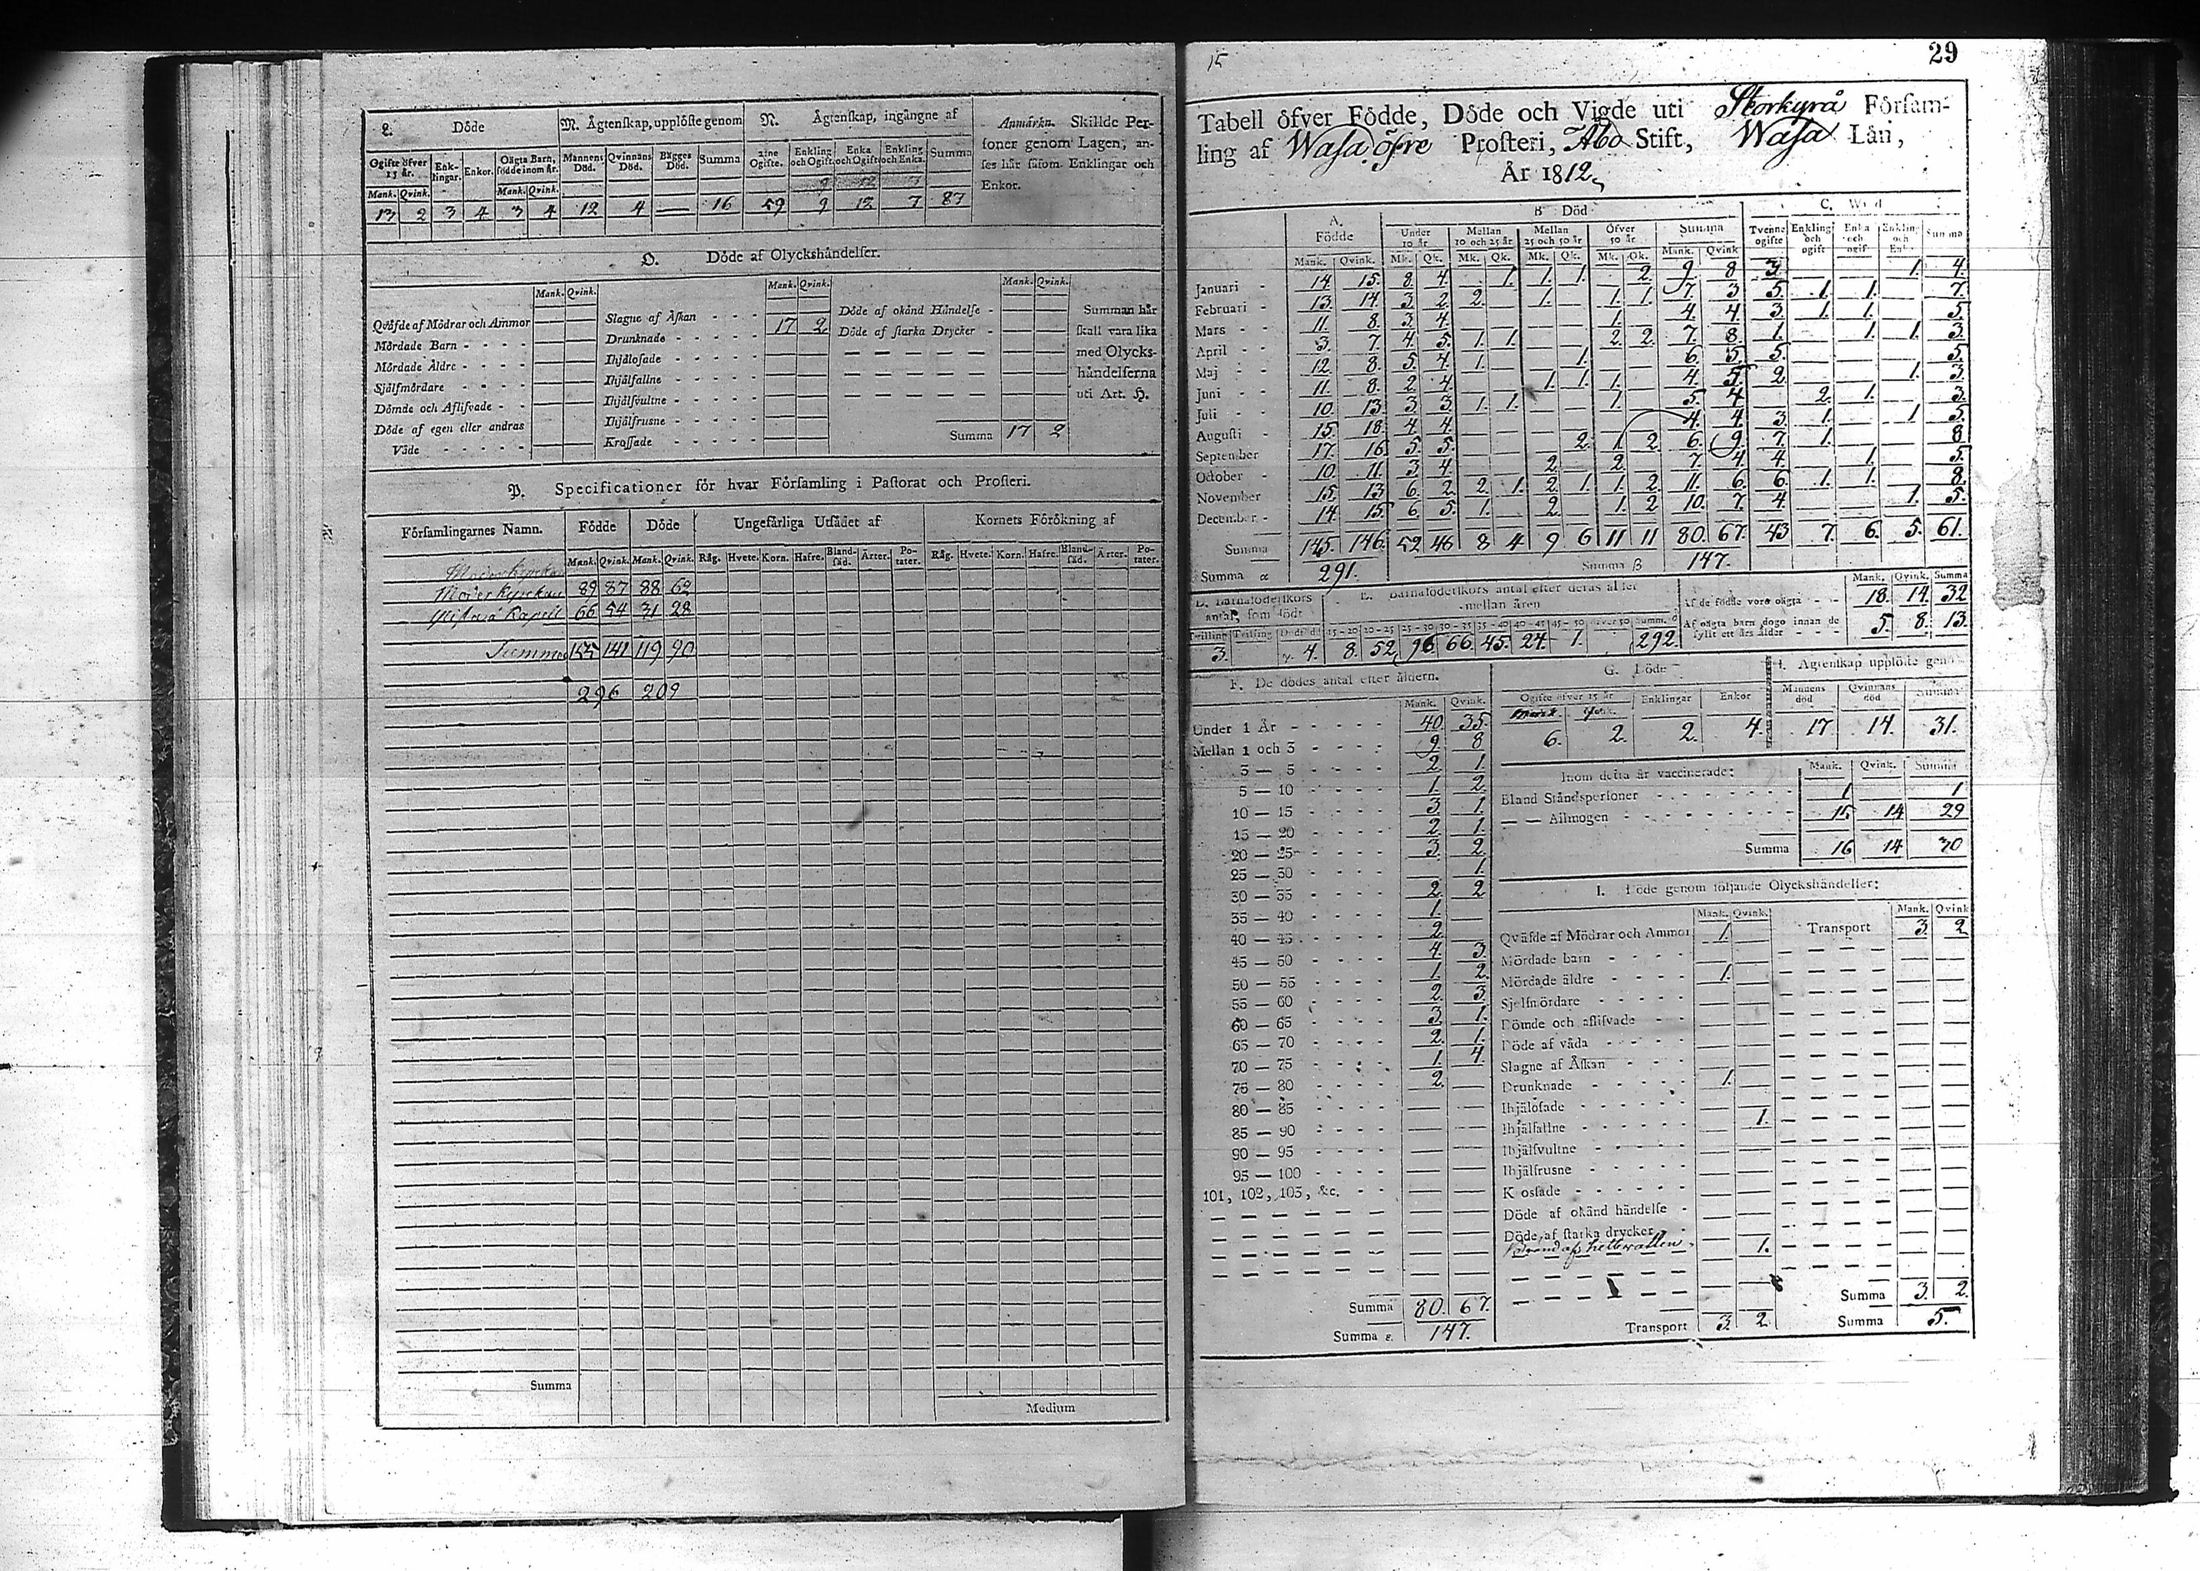 L. Döde
M. Ägtenskap, uplöste genom
N. Ägtenskap, ingångne af
Anmärkn. Skillde Per-
soner genom Lagen, an-
ses här såsom Enklingar och
Enkor.
Ogifte öfver 15 år. Enk-lingar. Enkor. Oägta Barn, födde inom år. Mannens Död. Qvinnans Död. Bägges Död. Summa 2:ne Ogifte. Enkling och Ogift. Enka och Ogift Enkling och Enka. Summa
Mank. Qvink. Mank. Qvink.
13 2 3 4 3 4 12 4 — 16 59 9 12 7 87
O. Döde af Olyckshändelser.
Mank. Qvink. Mank. Qvink. Mank. Qvink.
Qväfde af Mödrar och Ammor
Mördade Barn
Mördade Äldre
Självmördare
Dömde och Aflifvade
Döde af egen eller andras
Våde
Slagne af Åskan
Drunknade 17 2
Ihjälosade
Ihjälfallne
Ihjälsvultne
Ihjälfrusne
Krossade
Döde af okänd Händelse
Döde af starka Drycker
Summa 17 2
Summan här
skall vara lika
med Olycks-
händelserna
uti Art. H.
P. Specificationer för hvar Församling i Pastorat och Prosteri.
Församlingarnes Namn. Födde Döde Ungefärliga Utsädet af Kornets Förökning af
Mank. Qvink. Mank. Qvink. Råg. Hvete. Korn. Hafre. Bland-säd. Ärter. Po-tater. Råg. Hvete. Korn. Hafre. Bland-säd. Ärter. Po-tater.
Moderkyrkan 89 87 88 62
Kapell 66 54 31 28
Summa 155 141 119 90
296 209
Summa
Medium
15
29
Tabell öfver Födde, Döde och Vigde uti Storkyrå Försam-
ling af Wasa öfre Prosteri, Åbo Stift, Wasa Län,
År 1812
A. Födde B Död C.
Under 10 år Mellan 10 och 25 år Mellan 25 och 50 år Öfver 50 år Summa Tvenne ogifte Enkling och ogift Enka och ogift Enkling och Enka Summa
Mank. Qvink. Mk. Qk. Mk. Qk. Mk. Qk. Mk. Qk. Mank. Qvink
Januari 14. 15. 8. 4. 1. 1. 1. 2. 9. 8 3. 1. 4.
Februari 13. 14. 3. 2. 2. 1. 1. 1. 7. 3 5. 1. 1. 7.
Mars 11. 8. 3. 4. 1. 4. 4 3. 1. 1. 5.
April 3. 7. 4. 5. 1. 1. 2. 2. 7. 8. 1. 1. 1. 3.
Maj 12. 8. 5. 4. 1. 1. 6. 5. 5. 5.
Juni 11. 8. 2. 4. 1. 1. 1. 4. 5. 2. 1. 3.
Juli 10. 13. 3. 3. 1. 1. 1. 5. 4 2. 1. 3.
Augusti 15. 18. 4. 4. 4. 4. 3. 1. 1. 5.
September 17. 16. 5. 5. 2. 1. 2. 6. 9. 7. 1. 8
October 10. 11. 3. 4. 2. 2. 7. 4. 4. 1. 5.
November 15. 13. 6. 2. 2. 1. 2. 1. 1. 2. 11. 6. 6. 1. 1. 8.
December 14. 15. 6. 5. 1. 2. 1. 2 10. 7. 4. 1. 5.
Summa 145. 146. 52 46 8 4 9 6 11 11 80. 67. 43 7. 6. 5. 61.
Summa α 291. Summa β 147.
D. Barnaföderskors antal, som födt
E. Barnaföderskors antal efter deras ålder
mellan åren
Tvilling Trilling Dödf. 15-20 20-25 25-30 30-35 35-40 40-45 45-50 öfver 50 Summ.
3. 4. 8. 52. 96 66. 45. 24. 1. 292.
Mank. Qvink. Summa
Af de födde voro oägta 18. 14. 32
Af oägta barn dogo innan de
fyllt ett års ålder 5. 8. 13.
F. De dödes antal efter åldern.
Mank. Qvink.
Under 1 År 40. 35.
Mellan 1 och 3 9. 8
3 — 5 2. 1.
5 — 10 1. 2.
10 — 15 3. 1.
15 — 20 2. 1.
20 — 25 3. 2
25 — 30 1.
30 — 35 2. 2
35 — 40 1.
40 — 45 2.
45 — 50 4. 3.
50 — 55 1. 2.
55 — 60 2. 3.
60 — 65 3. 1.
65 — 70 2. 1.
70 — 75 1. 4.
75 — 80 2.
80 — 85
85 — 90
90 — 95
95 — 100
101, 102, 103, &c.
Summa 80. 67.
Summa ε. 147.
G. Döde
Ogifte öfver 15 år Enklingar Enkor
Mank. Qvink.
6. 2. 2. 4.
H. Ägtenskap upplöste genom
Mannens död Qvinnans död Summa
17 14. 31.
Inom detta år vaccinerade: Mank. Qvink. Summa
Bland Ståndspersoner 1 1
— — Allmogen 15 14 29
Summa 16 14 30
I. Döde genom följande Olyckshändelser:
Mank. Qvink. Mank. Qvink
Qväfde af Mödrar och Ammor 1.
Mördade barn
Mördade äldre 1.
Sjelfmördare
Dömde och aflifvade
Döde af våda
Slagne af Åskan
Drunknade 1.
Ihjälosade
Ihjälfallne 1.
Ihjälsvultne
Ihjälfrusne
Krossade
Döde af okänd händelse
Döde af starka drycker
1.
Transport 3. 2
Transport 3. 2
Summa 3. 2.
Summa 5.